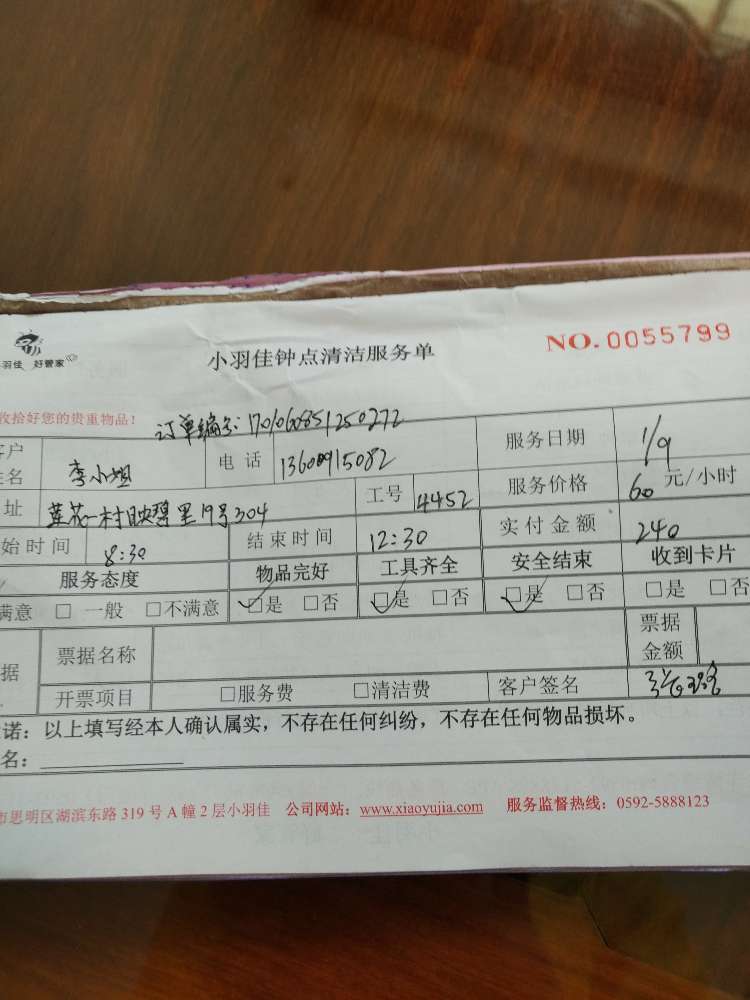 羽佳 好管家
小羽佳钟点清洁服务单
NO.0055799
收拾好您的贵重物品!
订单编号: 1701060851250272
户 李小姐 电话 13600915082 服务日期 1/9
名
址 莲花一村映碧里19号304 工号 4452 服务价格 60 元/小时
始时间 8:30 结束时间 12:30 实付金额 240
服务态度 物品完好 工具齐全 安全结束 收到卡片
满意 □一般 □不满意 □是 □否 □是 □否 □是 □否 □是 □否
据 票据名称 票据金额
开票项目 □服务费 □清洁费 客户签名
诺:以上填写经本人确认属实,不存在任何纠纷,不存在任何物品损坏。
名:
市思明区湖滨东路 319 号 A 幢 2 层小羽佳 公司网站:www.xiaoyujia.com 服务监督热线:0592-5888123